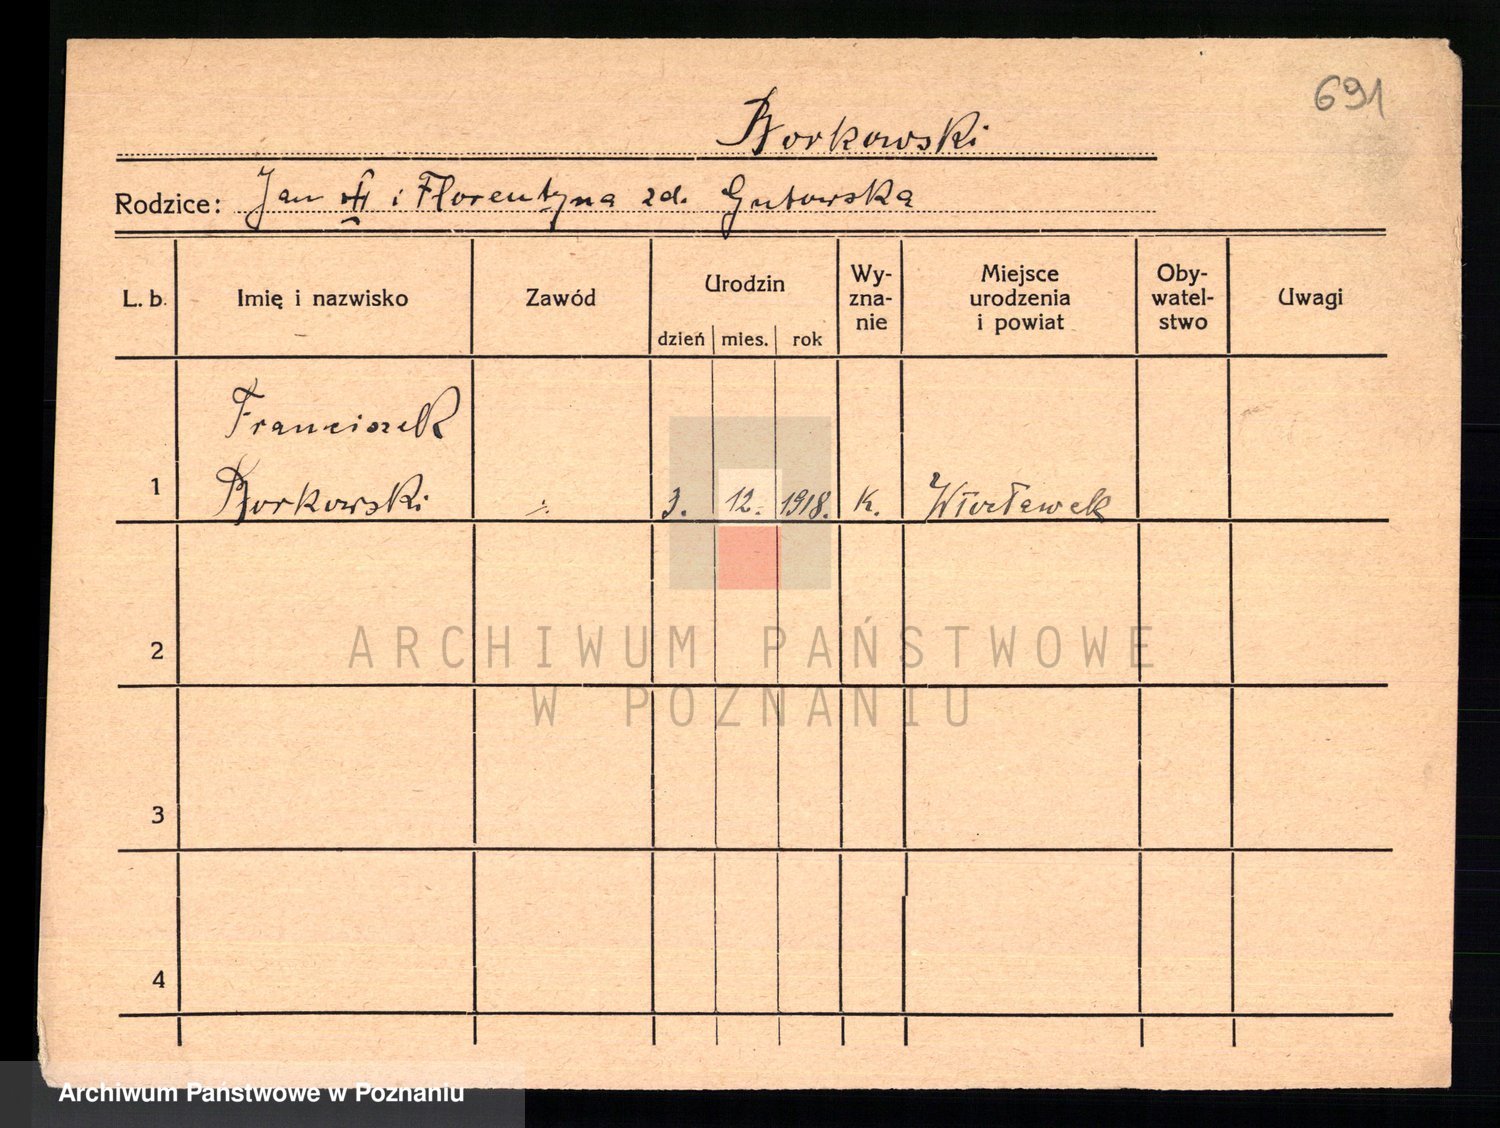 691
Borkowski
Rodzice: Jan i Florentyna zd. Gutowska
L. b. Imię i nazwisko Zawód Urodzin dzień mies. rok Wy-zna-nie Miejsce urodzenia i powiat Oby-watel-stwo Uwagi
Franciszek
1 Borkowski 3. 12. 1918. K. Włocławek
2
ARCHIWUM PAŃSTWOWE
W POZNANIU
3
4
Archiwum Państwowe w Poznaniu